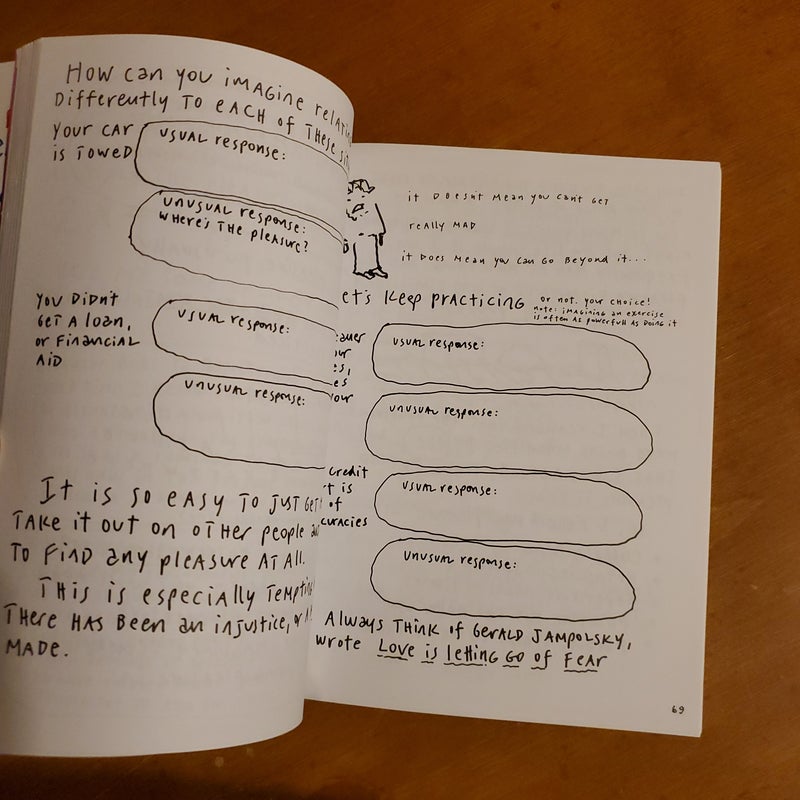 How can you imagine
Differently to each of these
Your car
is towed
usual response:
unusual response:
Where's the pleasure?
You didn't
get a loan,
or financial
aid
usual response:
unusual response:
It is so easy to just get
take it out on other people
to find any pleasure at all.
This is especially
there has been an injustice, or
made.
it doesn't mean you can't get
really mad
it does mean you can go beyond it...
keep practicing
or not. your choice!
note: imagining an exercise
is often as powerfull as doing it
usual response:
unusual response:
credit
t is
of
curacies
usual response:
unusual response:
Always think of Gerald Jampolsky,
wrote Love is letting go of Fear
69